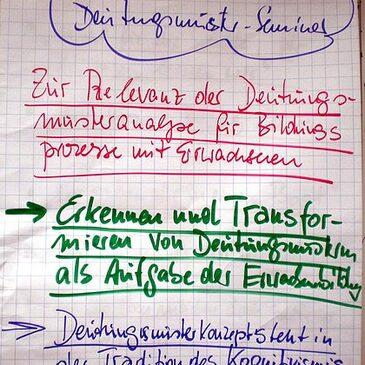 Deutungsmuster-Seminar
Zur Relevanz der Deutungs-
musteranalyse für Bildungs
prozesse mit Erwachsenen
→ Erkennen und Transfor-
mieren von Deutungsmustern
als Aufgabe der Erwachsenenbildung
⇒ Deutungsmusterkonzept steht in
der Tradition des Kognitivismus